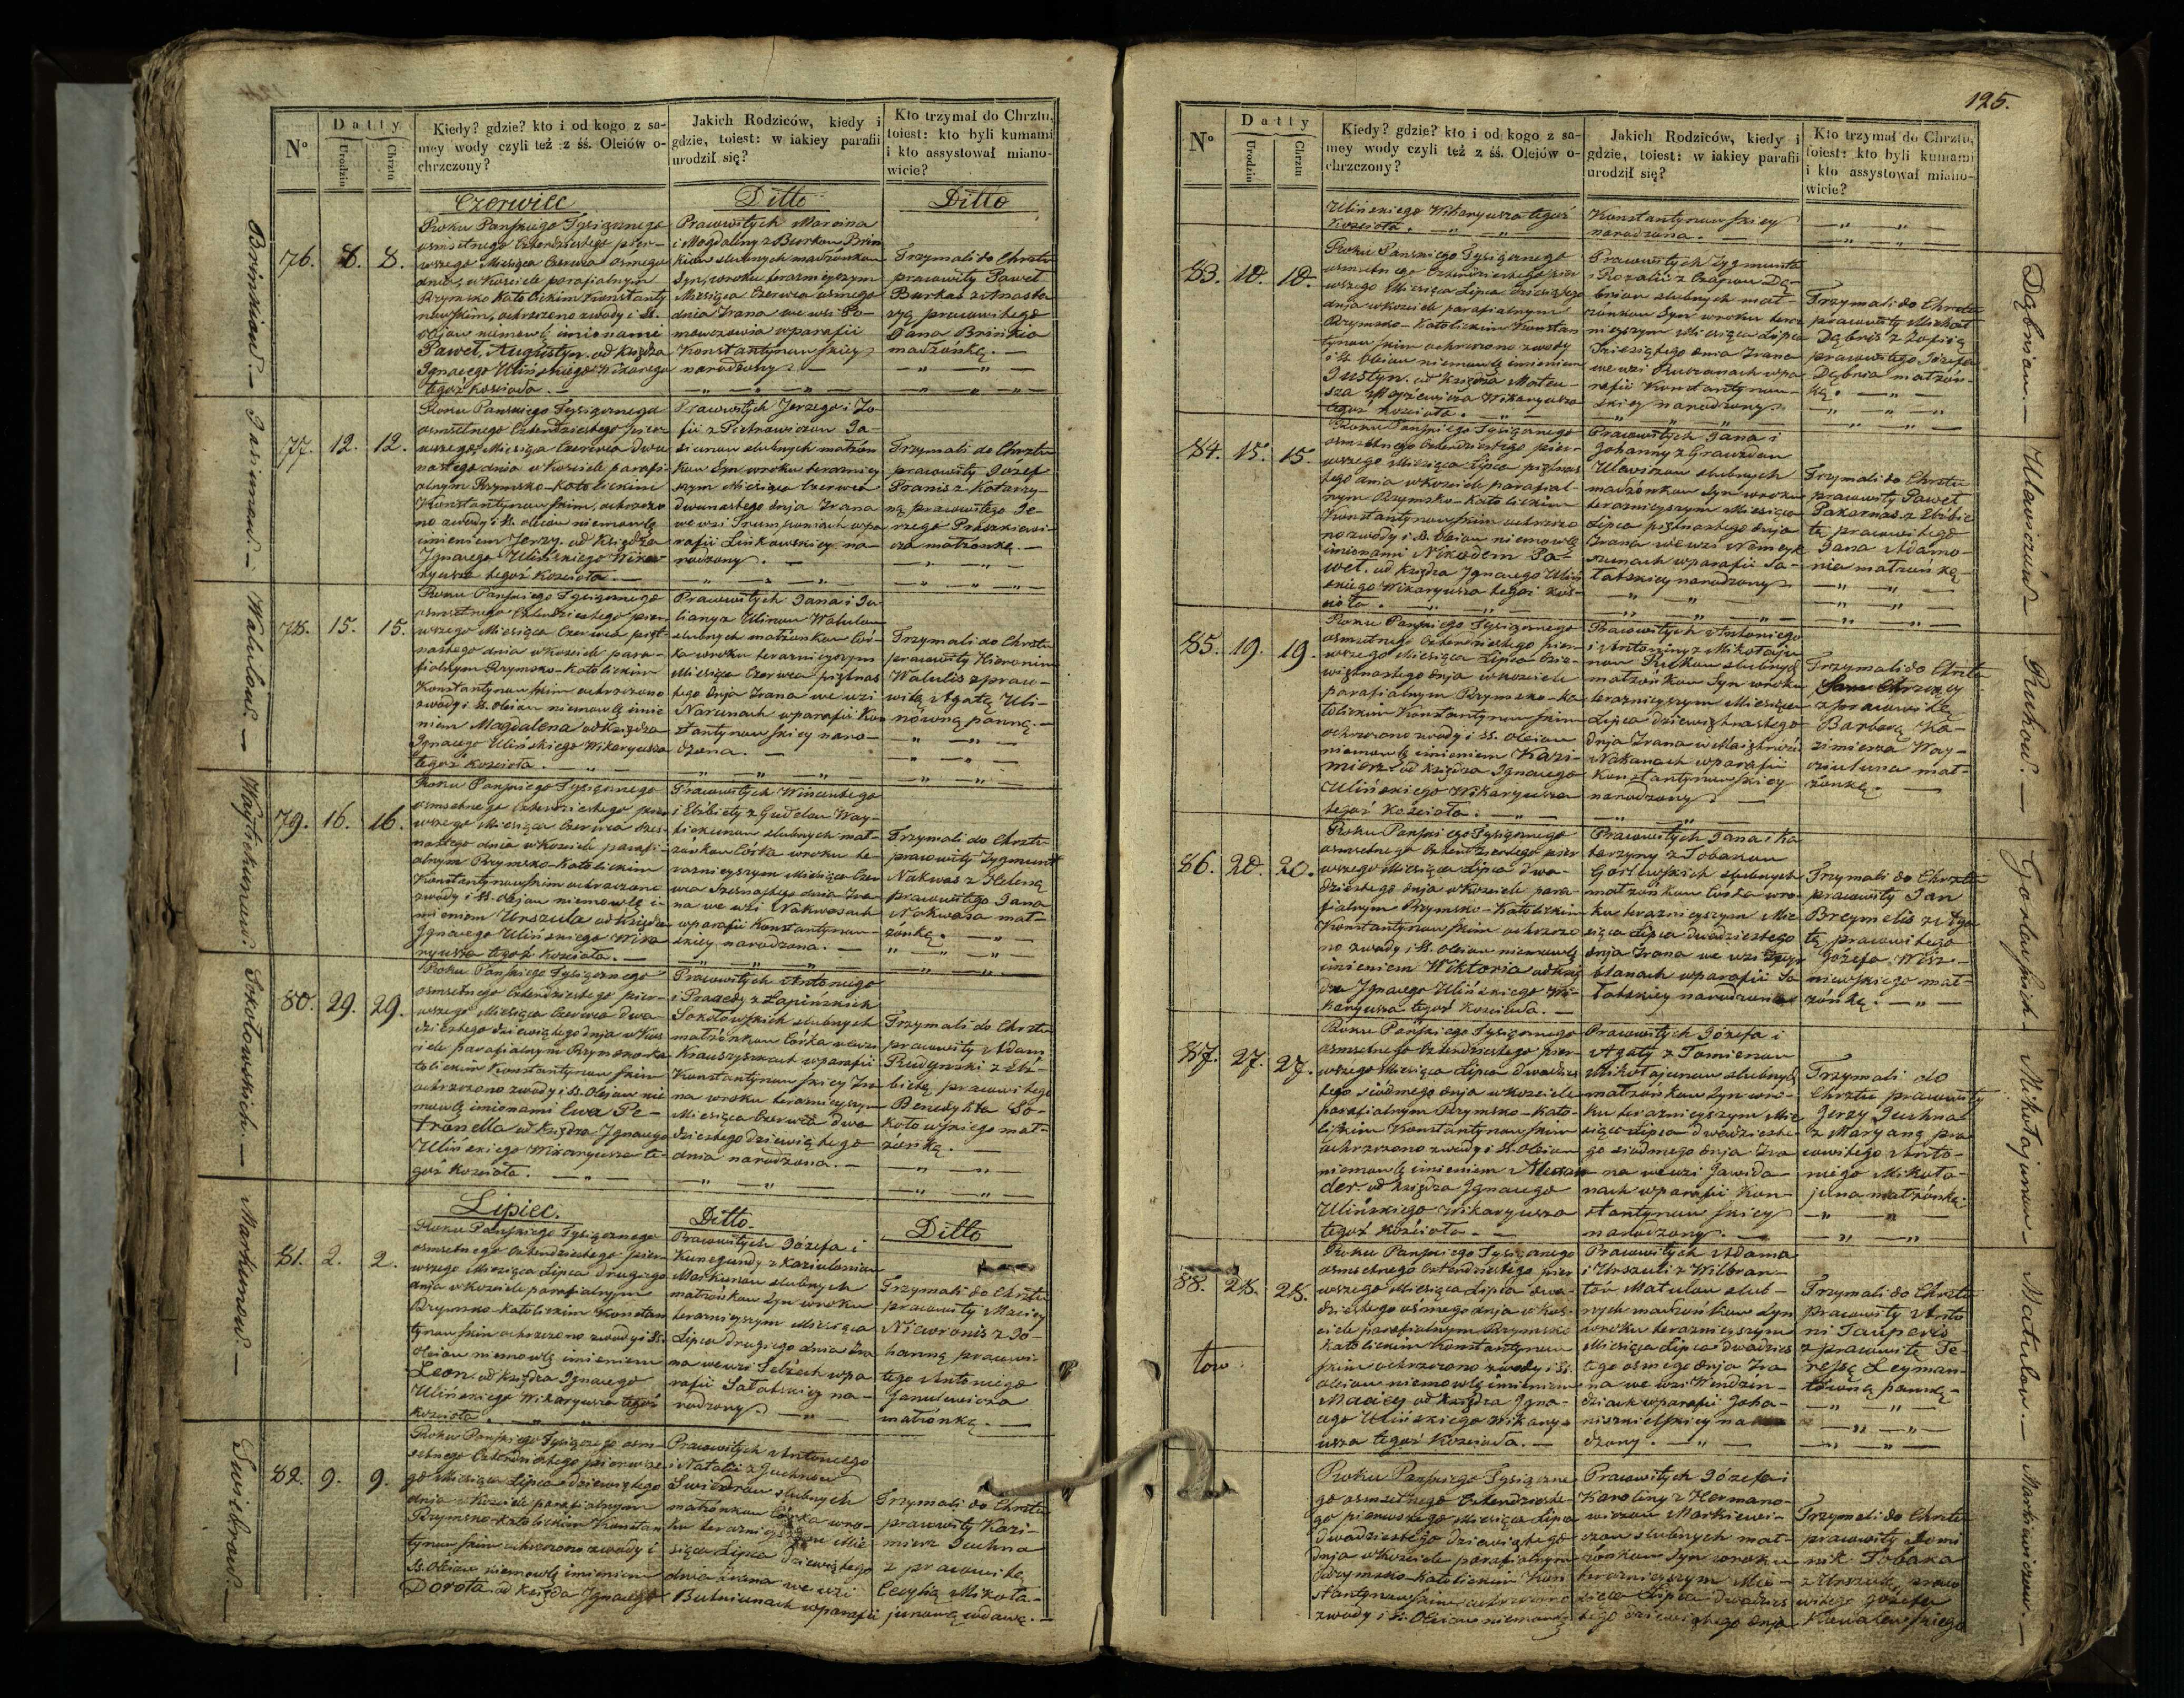 N°
Datty
Urodzin
Chrztu
Kiedy? gdzie? kto i od kogo z sa-
mey wody czyli też z śś. Oleiów o-
chrzczony?
Jakich Rodziców, kiedy i
gdzie, toiest: w iakiey parafii
urodził się?
Kto trzymał do Chrztu,
toiest: kto byli kumami
i kto assystował miano-
wicie?
Czerwiec
Ditto
Ditto
76. 8. 8.
Roku Pańskiego Tysiącznego
osmsetnego Czterdziestego pier-
wszego Miesiąca Czerwca osmego
dnia, w Kościele parafialnym
Rzymsko Katolickim Konstanty
nowskim, ochrzczono zwody i SS.
olejow niemowlę imionami
Paweł, Augustyn. od Księdza
Ignacego Ulińskiego Wikarego
tegoż kościoła. —
Prawowitych Marcina
i Magdaleny z Burkow Brin
kiow slubnych małżonkow
Syn, wroku terazniejszym
Miesiąca Czerwca osmego
dnia zrana we wsi
w parafii
Konstantynowskiey
narodzony. —
Trzymali do Chrztu
pracowity Paweł
Burkas z Anasta
zyą pracowitego
Jana Brinkia
małżonką. —
77. 12. 12.
Roku Pańskiego Tysiącznego
osmsetnego Czterdziestego pier
wszego Miesiąca Czerwca dwu
nastego dnia w Kościele parafi
alnym Rzymsko-Katolickim
Konstantynowskim, ochrzczo
no zwody i SS. oleiow niemowlę
imieniem Jerzy. od Księdza
Ignacego Ulińskiego Wika
ryusza tegoż Kościoła. —
Prawowitych Jerzego i Zo
fii z Pietrowiczow Ja-
sienow slubnych małżon
kow Syn wroku terazniey
szym Miesiąca Czerwca
dwunastego dnia Zrana
we wsi w pa
rafii Linkowskiey na-
rodzony. —
Trzymali do Chrztu
pracowity Jozef
Pranis z Katarzy-
ną pracowitego Je-
rzego
cza małżonką. —
78. 15. 15.
Roku Pańskiego Tysiącznego
osmsetnego Czterdziestego pier
wszego Miesiąca Czerwca pięt
nastego dnia w Kościele para-
fialnym Rzymsko-Katolickim
Konstantynowskim ochrzczono
zwody i SS. oleiow niemowlę imie
niem Magdalena od Księdza
Ignacego Ulińskiego Wikaryusza
tegoż kościoła.
Prawowitych Jana i Ju
lianny z Ulinow Watulow
slubnych małżonkow Cór-
ka wroku terazniejszym
Miesiąca Czerwca piętnas
tego dnia Zrana we wsi
Narunach w parafii Kon
stantynowskiey naro-
dzona. —
Trzymali do Chrztu
pracowity Hieronim
Watulis z praco-
witą Agatą Uli-
nówną panną. —
79. 16. 16.
Roku Pańskiego Tysiącznego
osmsetnego Czterdziestego pier
wszego Miesiąca Czerwca szes-
nastego dnia w Kościele parafi-
alnym Rzymsko-Katolickim
Konstantynowskim ochrzczono
zwody i SS. olejow niemowlę i-
mieniem Urszula od Księdza
Ignacego Ulińskiego Wika
ryusza tegoż kościoła. —
Prawowitych Wincentego
i Elżbiety z Gudelow Woy-
tiekunow slubnych mał-
żonkow Córka wroku te-
razniejszym Miesiąca Czer
wca Szesnastego dnia Zra-
na we wsi Nakwasach
w parafii Konstantynow-
skiey narodzona. —
Trzymali do Chrztu
pracowity Zygmunt
Nakwas z Heleną
pracowitego Jana
Nakwasa mał-
żonką. —
80. 29. 29.
Roku Pańskiego Tysiącznego
osmsetnego Czterdziestego pier-
wszego Miesiąca Czerwca dwa-
dziestego dziewiątego dnia w Koś
ciele parafialnym Rzymsko-ka
tolickim Konstantynowskim
ochrzczono zwody i SS. Olejow nie
mowlę imionami Ewa Pe-
tronella od Księdza Ignacego
Ulińskiego Wikaryusza te-
goż kościoła.
Prawowitych Antoniego
i Pragedy z Łapińskich
Sokołowskich slubnych
małżonkow Córka we wsi
w parafii
Konstantynowskiey Zra
na wroku terazniejszym
Miesiąca Czerwca dwa
dziestego dziewiątego
dnia narodzona. —
Trzymali do Chrztu
pracowity Adam
Rudynski z Elż-
bietą pracowitego
Benedykta So-
kołowskiego mał-
żonką. —
Lipiec.
Ditto
Ditto
81. 2. 2.
Roku Pańskiego Tysiącznego
osmsetnego Czterdziestego pier-
wszego Miesiąca Lipca drugiego
dnia w Kościele parafialnym
Rzymsko-Katolickim Konstan
tynowskim ochrzczono zwody i SS.
Oleiow niemowlę imieniem
Leon. od Księdza Ignacego
Ulińskiego Wikaryusza tegoż
kościoła.
Prawowitych Józefa i
Kunegundy z
Markunow slubnych
małżonkow Syn wroku
terazniejszym Miesiąca
Lipca drugiego dnia Zra
na we wsi w pa
rafii Sałatskiey na-
rodzony.
Trzymali do Chrztu
pracowity Maciey
Niewronis z Jo-
hanną pracowi-
tego Antoniego
Janulewicza
małżonką. —
82. 9. 9.
Roku Pańskiego Tysiącznego osm-
setnego Czterdziestego pierwsze
go Miesiąca Lipca dziewiątego
dnia w Kościele parafialnym
Rzymsko-Katolickim Konstan
tynowskim ochrzczono zwody i
SS. Oleiow niemowlę imieniem
Dorota. od Księdza Ignacego
Prawowitych Antoniego
i Natalii z Juchnow
slubnych
małżonkow Córka wro-
ku terazniejszym Mie
siąca Lipca dziewiątego
dnia Zrana we wsi
Butniunach w parafii
Trzymali do Chrztu
pracowity Kazi-
mierz Juchna
z pracowitą
Cecylią Mikoła-
junową wdową. —
Brinkiow. — Jasienow — Watulow. — Woytiekunow. Sokołowskich. — Markunow. —
125.
N°
Datty
Urodzin
Chrztu
Kiedy? gdzie? kto i od kogo z sa-
mey wody czyli też z śś. Oleiów o-
chrzczony?
Jakich Rodziców, kiedy i
gdzie, toiest: w iakiey parafii
urodził się?
Kto trzymał do Chrztu,
toiest: kto byli kumami
i kto assystował miano-
wicie?
Ulińskiego Wikaryusza tegoż
Kościoła.
Konstantynowskiey
narodzona. —
83. 10. 10.
Roku Pańskiego Tysiącznego
osmsetnego Czterdziestego pier
wszego Miesiąca Lipca dziesiątego
dnia w kościele parafialnym
Rzymsko-Katolickim Konstan
tynowskim ochrzczono zwody
i SS Oleiow niemowlę imieniem
Justyn. od Księdza Mateu-
sza Wikaryusza
tegoż kościoła.
Prawowitych Zygmunta
i Rozalii z Czapow Dą-
bniow slubnych mał-
żonkow Syn wroku teraz
niejszym Miesiąca Lipca
Dziesiątego dnia Zrana
we wsi w pa
rafii Konstantynow-
skiey narodzony.
Trzymali do Chrztu
pracowity Michał
Dąbnis z Zofią
pracowitego Józefa
Dąbnia małżon-
ką. —
84. 15. 15.
Roku Pańskiego Tysiącznego
osmsetnego Czterdziestego pier-
wszego Miesiąca Lipca piętnas
tego dnia w kościele parafial-
nym Rzymsko-Katolickim
Konstantynowskim ochrzczo
no zwody i SS. Oleiow niemowlę
imionami Nikodem Pa-
weł. od Księdza Ignacego Uliń
skiego Wikaryusza tegoż koś-
cioła.
Prawowitych Jana i
Johanny z Grawzdow
Ulewiczow slubnych
małżonkow Syn wroku
terazniejszym Miesiąca
Lipca piętnastego dnia
Zrana we wsi
w parafii Sa-
łatskiey narodzony
Trzymali do Chrztu
pracowity Paweł
Pakarnas z Elżbie
tą pracowitego
Jana Adamo-
nia małżonką —
85. 19. 19.
Roku Pańskiego Tysiącznego
osmsetnego Czterdziestego pier-
wszego Miesiąca Lipca dzie-
więtnastego dnia w kościele
parafialnym Rzymsko-ka
tolickim Konstantynowskim
ochrzczono zwody i SS. oleiow
niemowlę imieniem Kazi-
mierz od Księdza Ignacego
Ulińskiego Wikaryusza
tegoż Kościoła.
Prawowitych Antoniego
i Antoniny z Mikołaju
now Rukow slubnych
małżonkow Syn wroku
terazniejszym Miesiąca
Lipca dziewiętnastego
dnia Zrana w
Nakanach w parafii
Konstantynowskiey
narodzony. —
Trzymali do Chrztu
z pracowitą
Barbarą Ka-
zimierza Woy-
mał-
żonką. —
86. 20. 20.
Roku Pańskiego Tysiącznego
osmsetnego Czterdziestego pier
wszego Miesiąca Lipca dwa-
dziestego dnia w Kościele para-
fialnym Rzymsko-Katolickim
Konstantynowskim ochrzczo
no zwody i SS. oleiow niemowlę
imieniem Wiktoria od Księ
dza Ignacego Ulińskiego Wi-
karyusza tegoż kościoła. —
Prawowitych Jana i Ka
tarzyny z Tobakow
Gorlewskich slubnych
małżonkow Córka wro-
ku terazniejszym Mie
siąca Lipca dwudziestego
dnia Zrana we wsi
w parafii Sa
łatskiey narodzona
Trzymali do Chrztu
pracowity Jan
Breymelis z Aga
tą pracowitego
Józefa Wisz-
niewskiego mał-
żonką. —
87. 27. 27.
Roku Pańskiego Tysiącznego
osmsetnego Czterdziestego pier-
wszego Miesiąca Lipca dwudzies
tego siodmego dnia w kościele
parafialnym Rzymsko-Kato-
lickim Konstantynowskim
ochrzczono zwody i SS. Oleiow
niemowlę imieniem Alexan
der. od Księdza Ignacego
Ulińskiego Wikaryusza
tegoż kościoła. —
Prawowitych Józefa i
Agaty z Tomienow
Mikołajunow slubnych
małżonkow Syn wro-
ku terazniejszym Mie
siąca Lipca dwudzieste-
go siodmego dnia Zra
na we wsi Gawida-
nach w parafii Kon-
stantynowskiey
narodzony. —
Trzymali do
Chrztu pracowity
Jerzy Juchna
z Maryaną pra
cowitego Anto-
niego Mikoła-
juna małżonką.
88. 28. 28.
Roku Pańskiego Tysiącznego
osmsetnego Czterdziestego pier
wszego Miesiąca Lipca dwu-
dziestego osmego dnia w Koś-
ciele parafialnym Rzymsko
Katolickim Konstantynow
skim ochrzczono zwody i SS.
oleiow niemowlę imieniem
Maciey od Księdza Igna-
cego Ulińskiego Wikary-
usza tegoż Kościoła. —
Prawowitych Adama
i Urszuli z Wilbran-
tów Matulow slub-
nych małżonkow Syn
wroku terazniejszym
Miesiąca Lipca dwudzies
tego osmego dnia Zra
na we wsi
w parafii Joha-
niszkielskiey na
dzony.
Trzymali do Chrztu
Pracowity Anto
ni Tauperis
z pracowitą Te-
ressą Leyman-
tówną panną —
tow
Roku Pańskiego Tysiączne
go osmsetnego Czterdzieste-
go pierwszego Miesiąca Lipca
dwudziestego dziewiątego
dnia w Kościele parafialnym
Rzymsko-Katolickim Kon
stantynowskim ochrzczono
zwody i SS. Oleiow niemowlę
Prawowitych Józefa i
Karoliny z Hermano-
wiczow Markiewi-
czow slubnych mał-
żonkow Syn wroku
terazniejszym Mie-
siąca Lipca dwudzies
tego dziewiątego dnia
Trzymali do Chrztu
pracowity Domi
nik Tobaka
z Urszulą praco
witego Józefa
Kowalewskiego
Dąbniow. — Ulewiczów — Rukow. — Gorlewskich — Mikołajunow — Matulow. — Markiewiczow. —